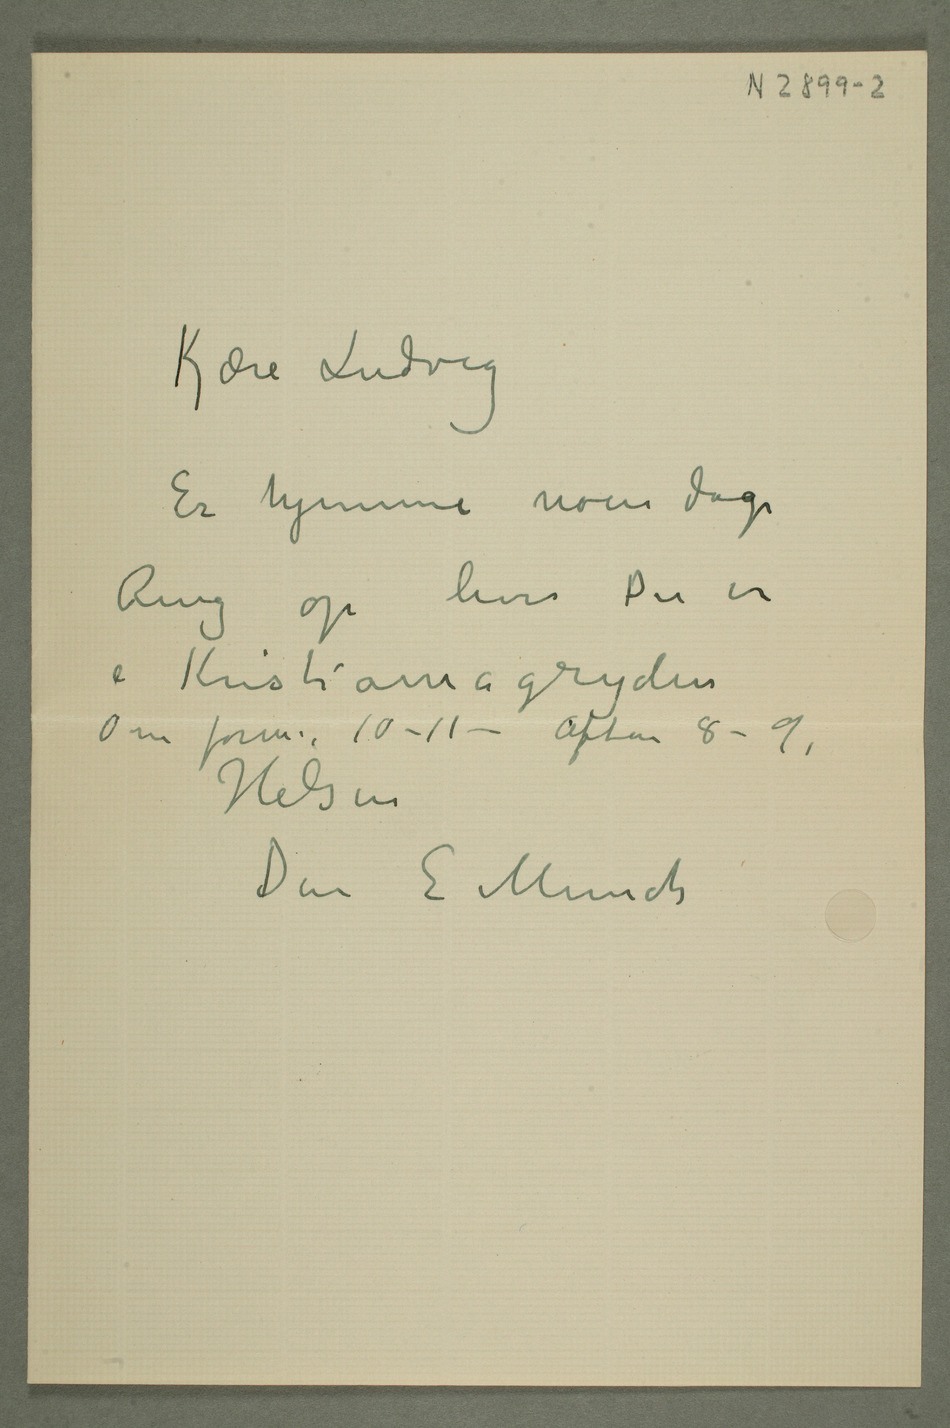 N 2899-2
Kjære Ludvig
Er hjemme noen dage
Ring op hvis Du er
i Kristianiagryden
Om form. 10-11 – Aften 8-9,
Hilsen
Din E Munch